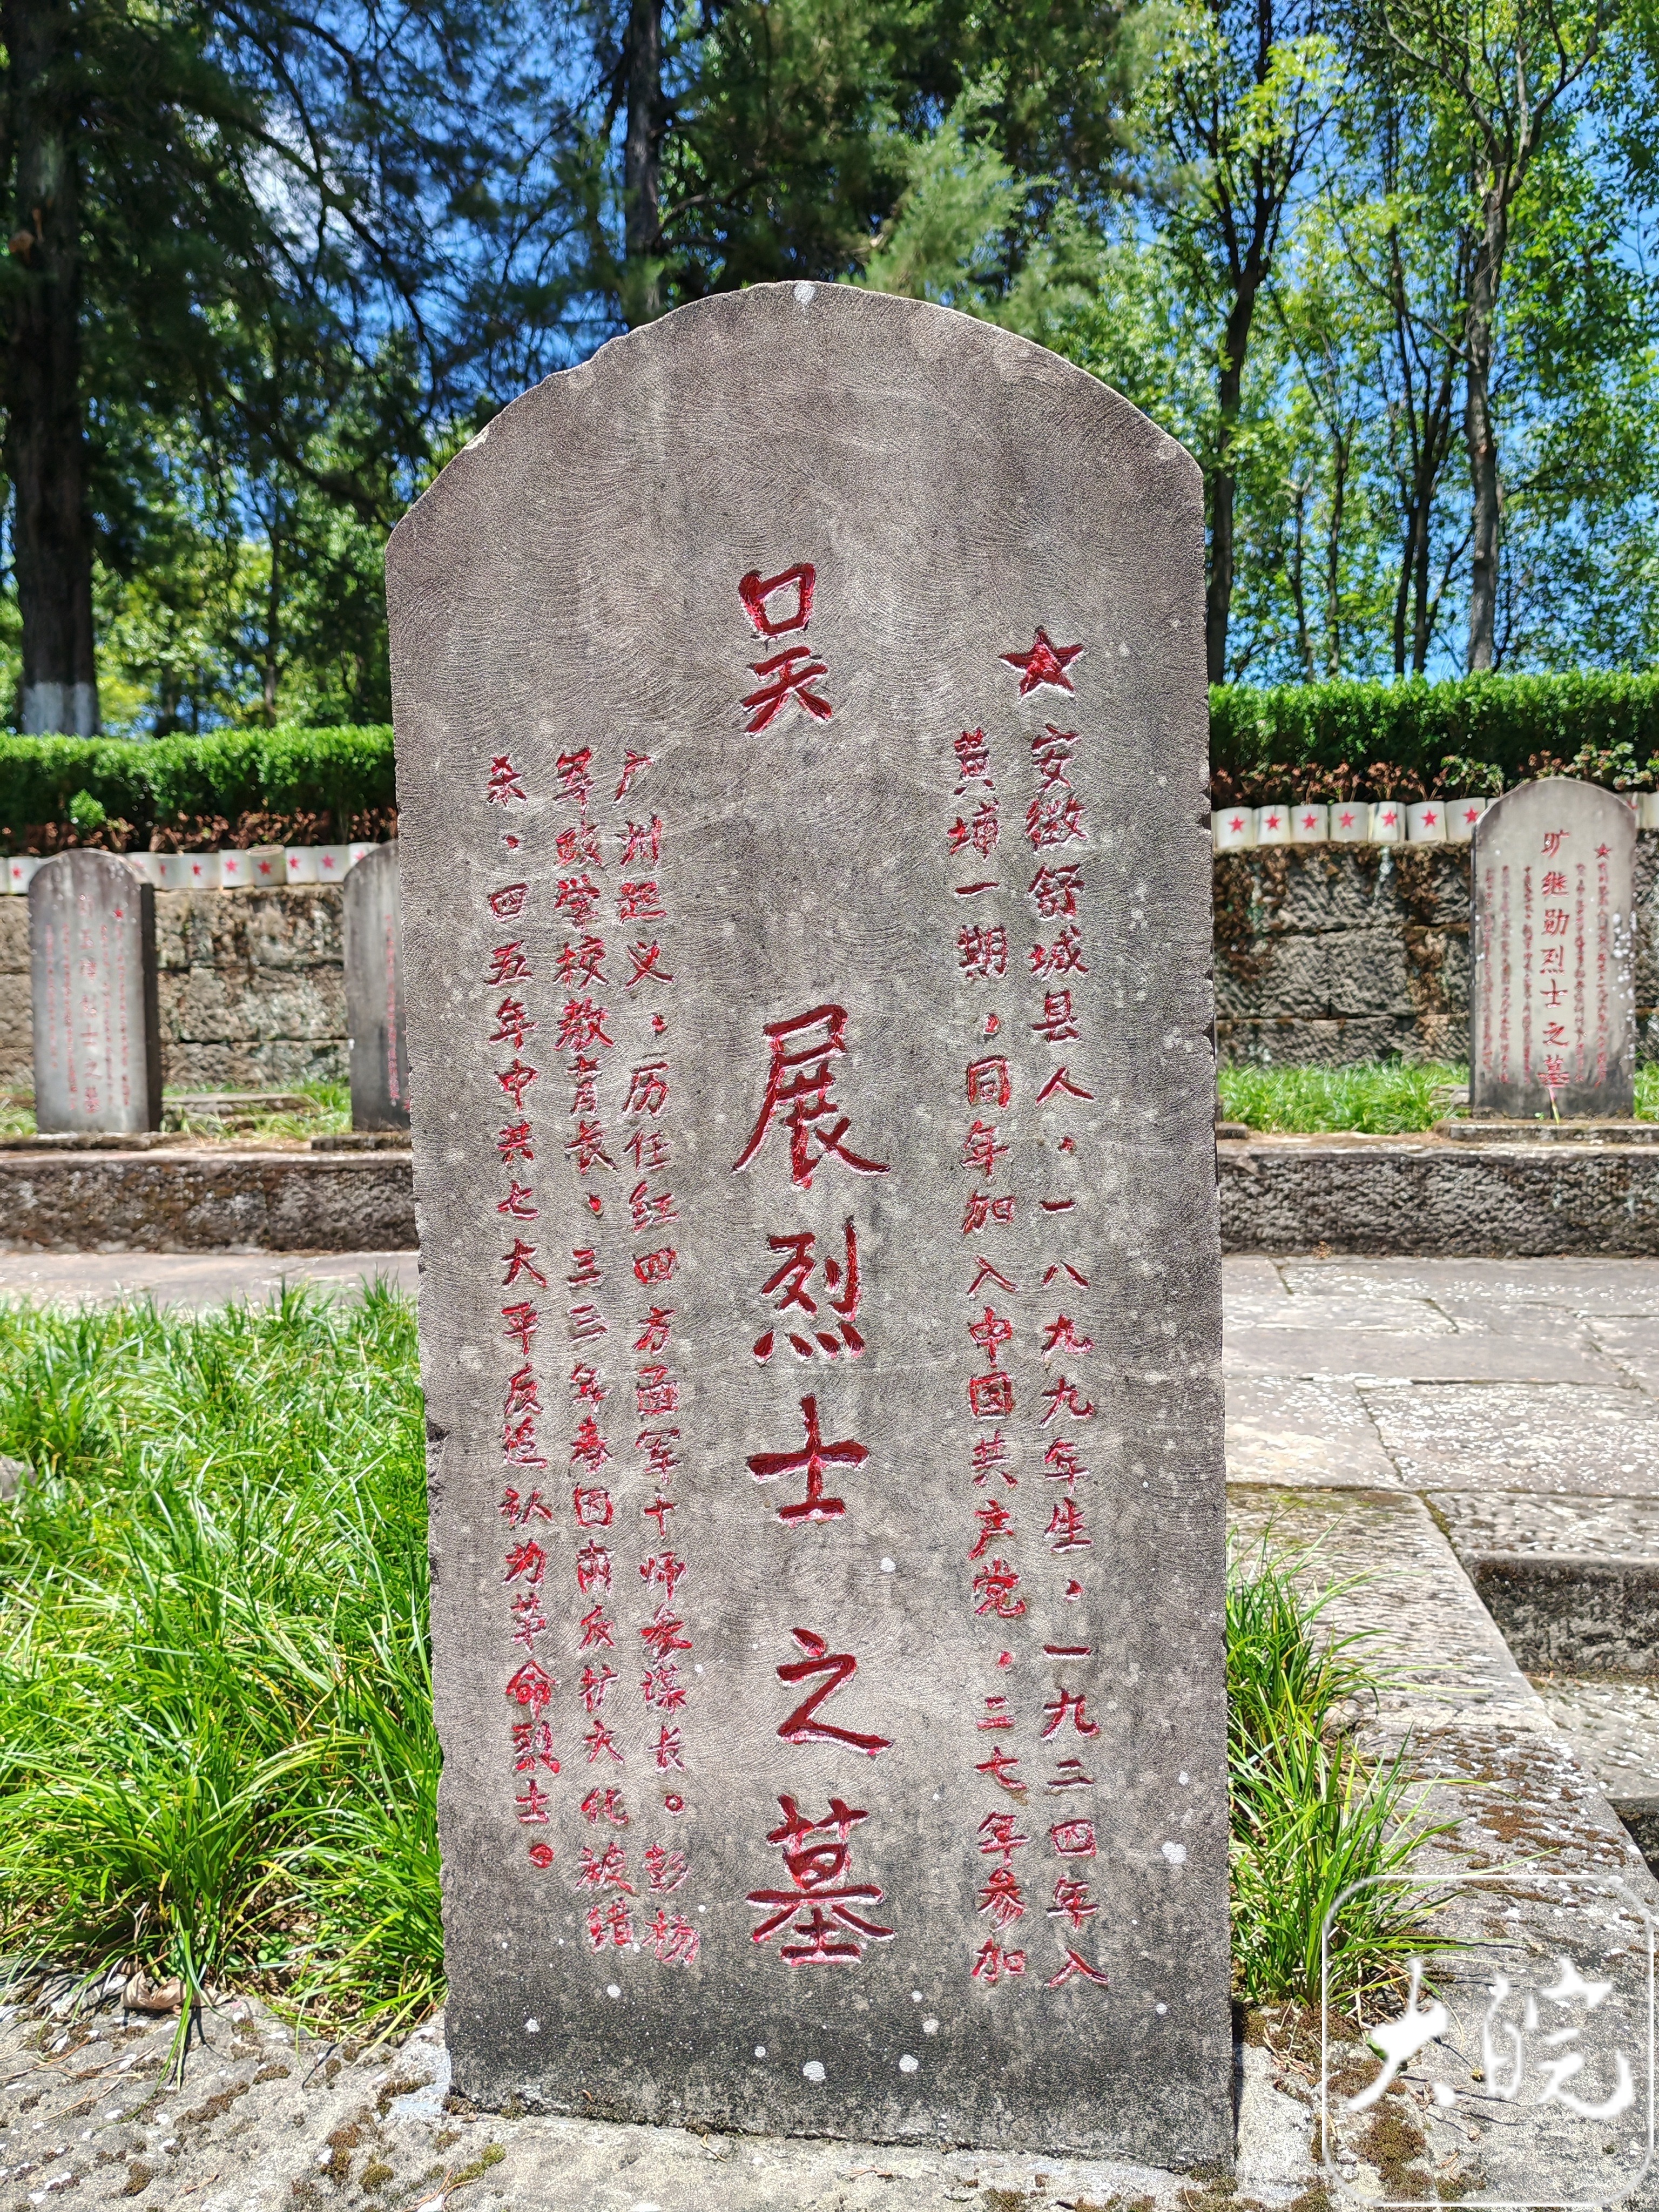 安徽舒城县人、一八九九年生、一九二四年入
黄埔一期、同年加入中国共产党、二七年参加
吴展烈士之墓
广州起义、历任红四方面军十师参谋长。彭杨
军政学校教育长、三三年春因肃反扩大化被错
杀、四五年中共七大平反追认为革命烈士。
旷继勋烈士之墓
大皖